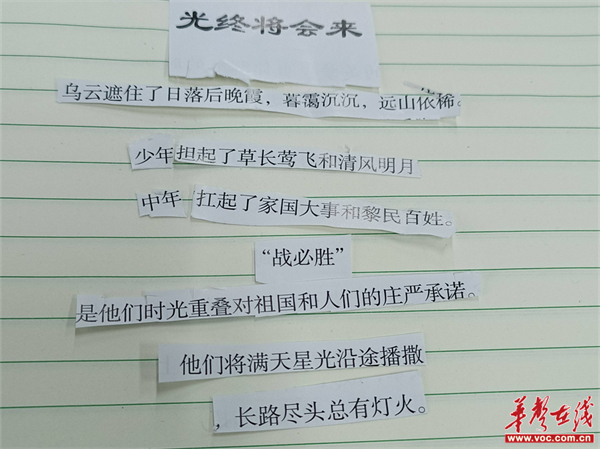 光终将会来
乌云遮住了日落后晚霞，暮霭沉沉，远山依稀。
少年担起了草长莺飞和清风明月
中年 扛起了家国大事和黎民百姓。
“战必胜”
是他们时光重叠对祖国和人们的庄严承诺。
他们将满天星光沿途播撒
，长路尽头总有灯火。
华声在线
www.voc.com.cn